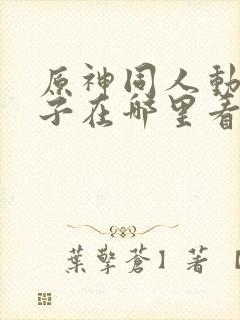 原神同人動
子在哪里看
葉擎蒼】著【